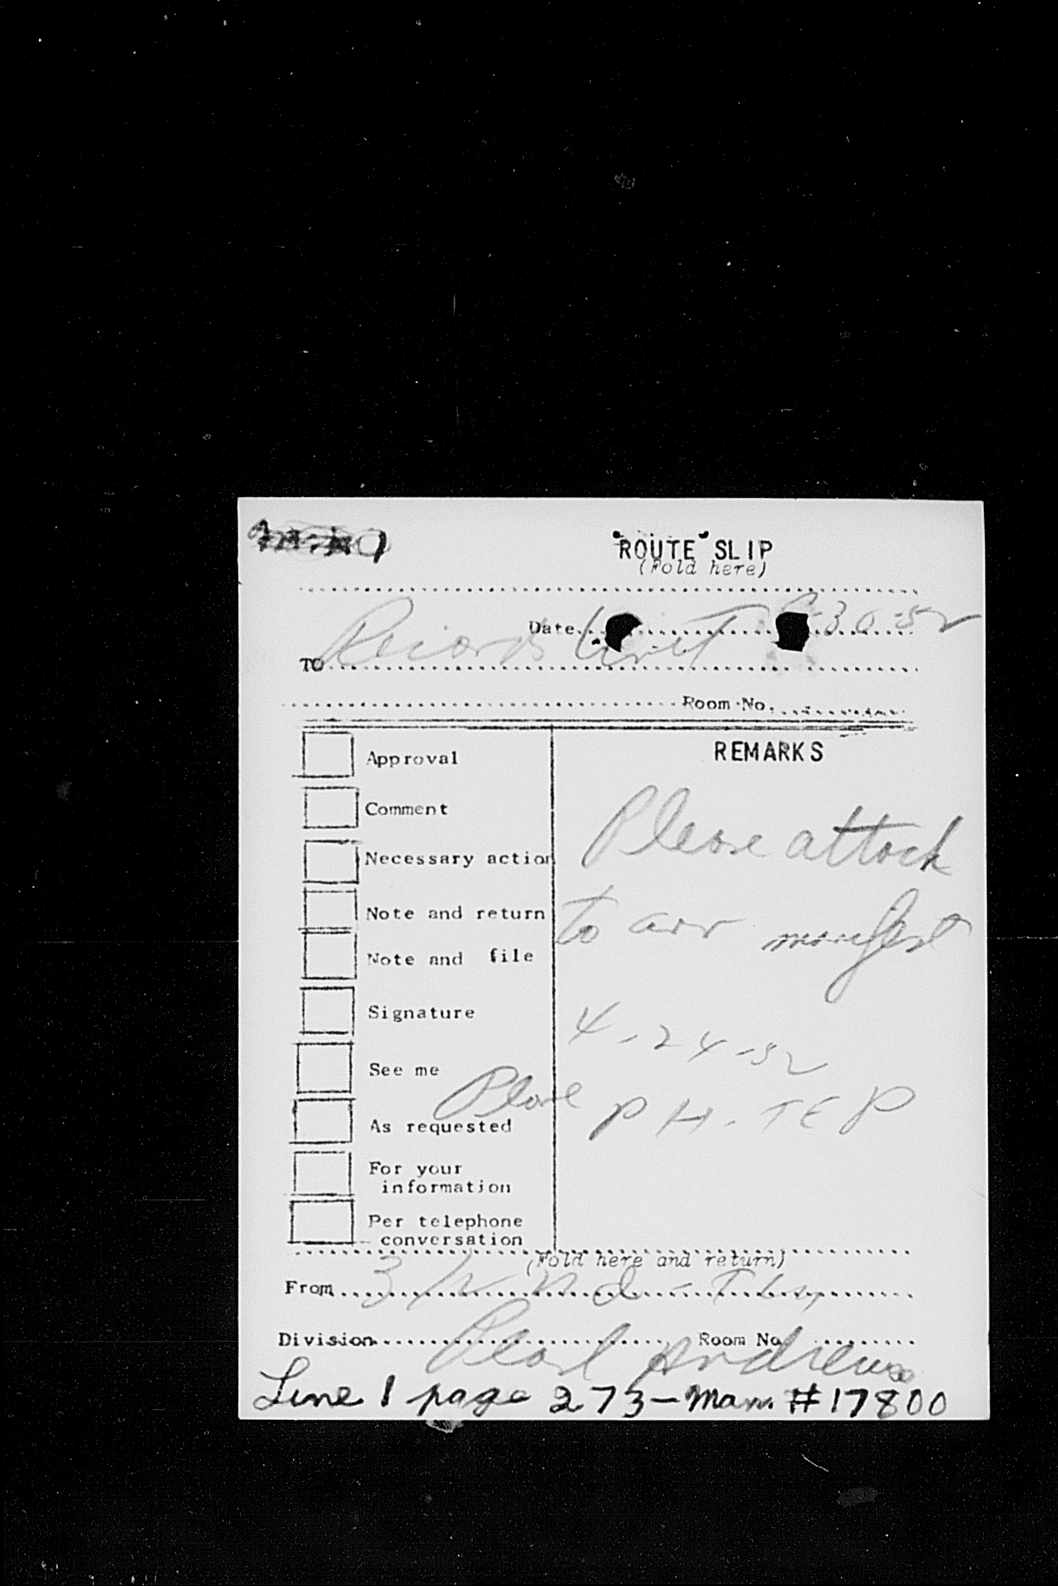 "ROUTE" SLIP
(Fold here)
Date 30-52
TO Records Unit
Room No.
REMARKS
Approval
Comment
Necessary action
Note and return
Note and file
Signature
See me
As requested
For your
information
Per telephone
conversation
Please attach
to arr manifest
4-24-52
Please PH-TEP
(Fold here and return)
From
Division Room No.
Pearl Andrews
Line 1 page 273-Man. #17800